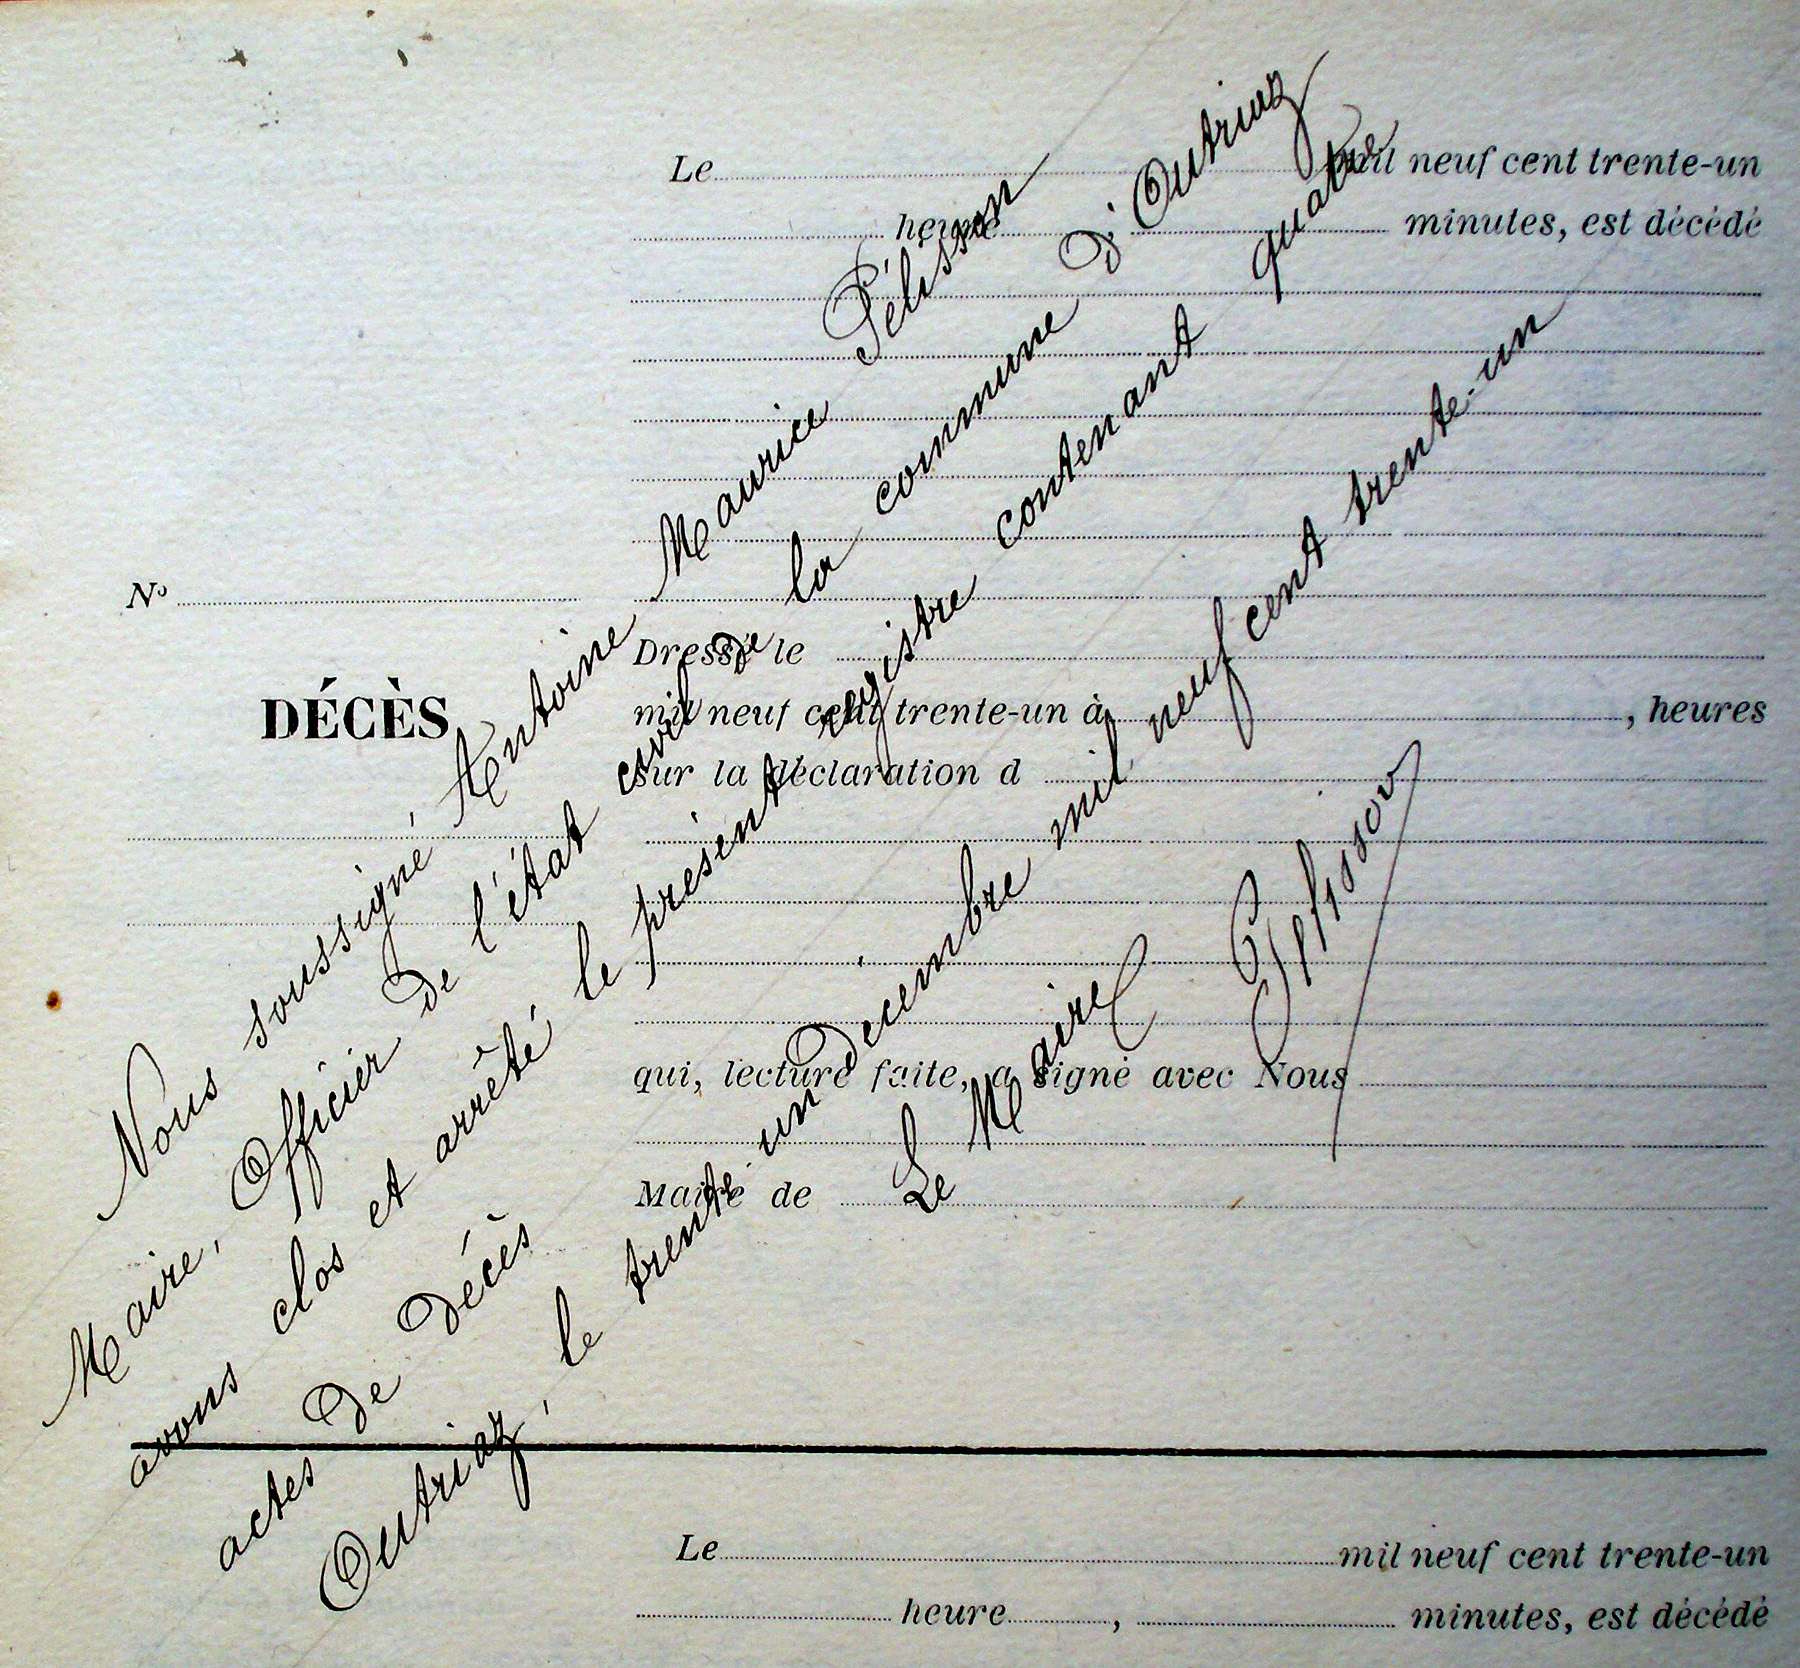 Le mil neuf cent trente-un
heure minutes, est décédé
No
DÉCÈS
Dressé le
mil neuf cent trente-un à , heures
sur la déclaration d
qui, lecture faite, a signé avec Nous
Maire de
Nous soussigné Antoine Maurice Pélisson
Maire, Officier de l'état civil de la commune d'Outriaz
avons clos et arrêté le présent registre contenant quatre
actes de décès
Outriaz, le trente un décembre mil neuf cent trente-un
Le Maire
Pelisson
Le mil neuf cent trente-un
heure , minutes, est décédé